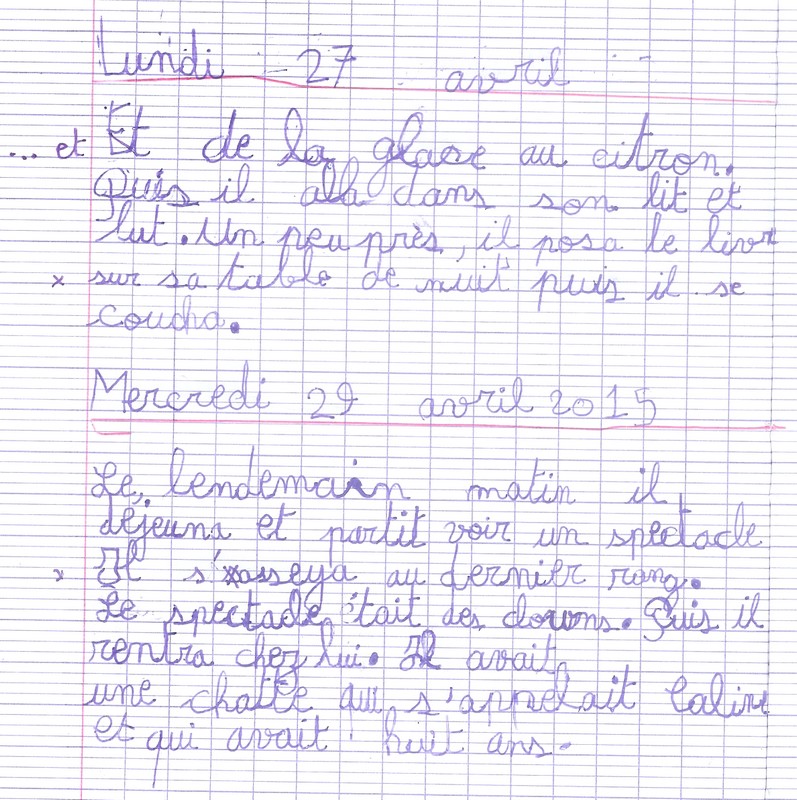 Lundi 27 avril
... et Et de la glace au citron.
Puis il alla dans son lit et
lut. Un peu près, il posa le livre
x sur sa table de nuit puis il se
coucha.
Mercredi 29 avril 2015
Le lendemain matin il
déjeuna et partit voir un spectacle
x Il s'asseya au dernier rang.
Le spectacle était des clowns. Puis il
rentra chez lui. Il avait
une chatte qui s'appelait Caline
et qui avait huit ans.